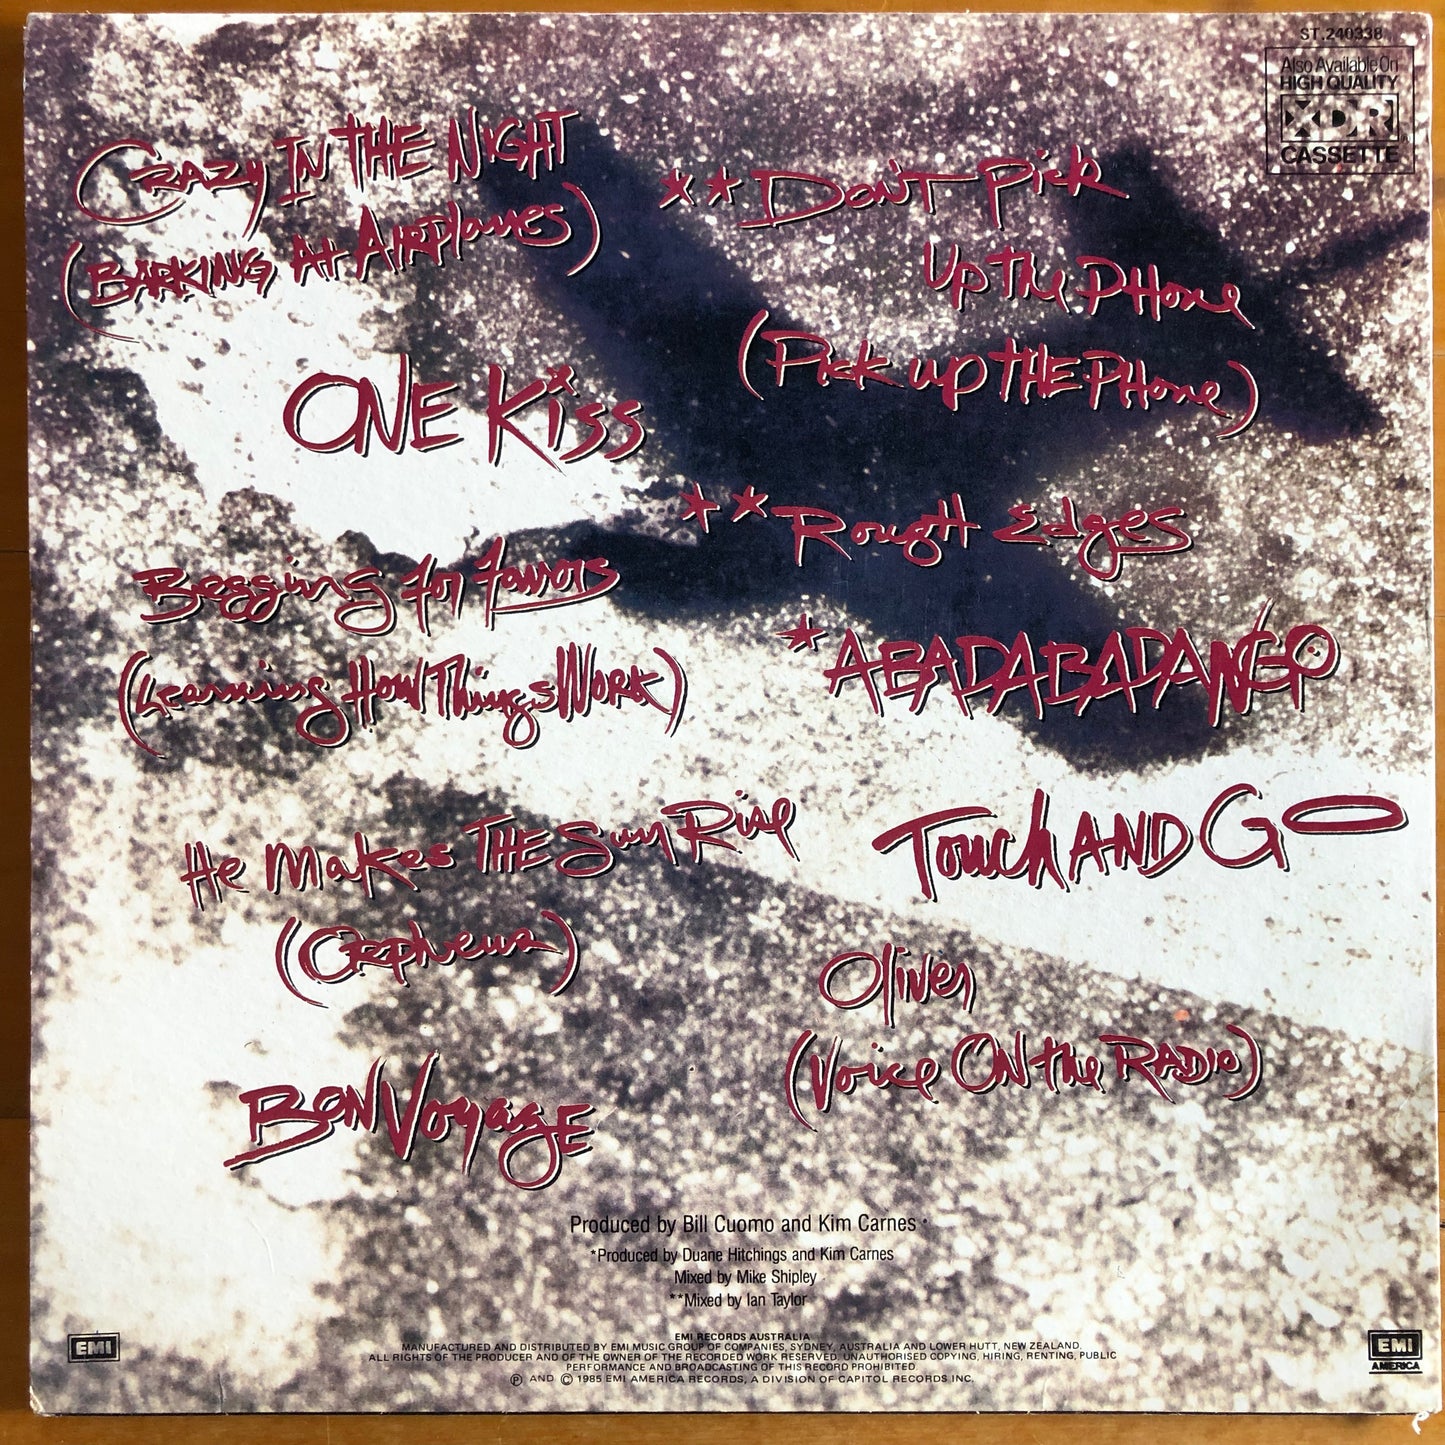 ST.240338
Also Available On
HIGH QUALITY
XDR
CASSETTE
CRAZY IN THE NIGHT
(BARKING At AIRPlanes)
ONE Kiss
Begging for favors
(Learning How Things Work)
He Makes THE Sun Rise
(Orpheus)
BON VoyagE
**Don't Pick
Up The PHone
(Pick up THE PHone)
**RougH Edges
*ABADABADANGO
Touch AND GO
Oliver
(Voice ON the RADIO)
Produced by Bill Cuomo and Kim Carnes
*Produced by Duane Hitchings and Kim Carnes
Mixed by Mike Shipley
**Mixed by Ian Taylor
EMI RECORDS AUSTRALIA
MANUFACTURED AND DISTRIBUTED BY EMI MUSIC GROUP OF COMPANIES, SYDNEY, AUSTRALIA AND LOWER HUTT, NEW ZEALAND.
ALL RIGHTS OF THE PRODUCER AND OF THE OWNER OF THE RECORDED WORK RESERVED. UNAUTHORISED COPYING, HIRING, RENTING, PUBLIC
PERFORMANCE AND BROADCASTING OF THIS RECORD PROHIBITED
Ⓟ AND © 1985 EMI AMERICA RECORDS, A DIVISION OF CAPITOL RECORDS INC.
EMI
EMI
AMERICA